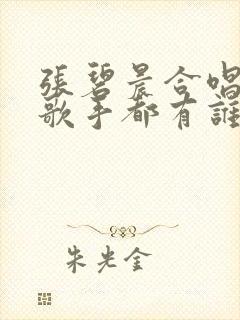 張碧晨合唱
歌手都有誰
朱光金